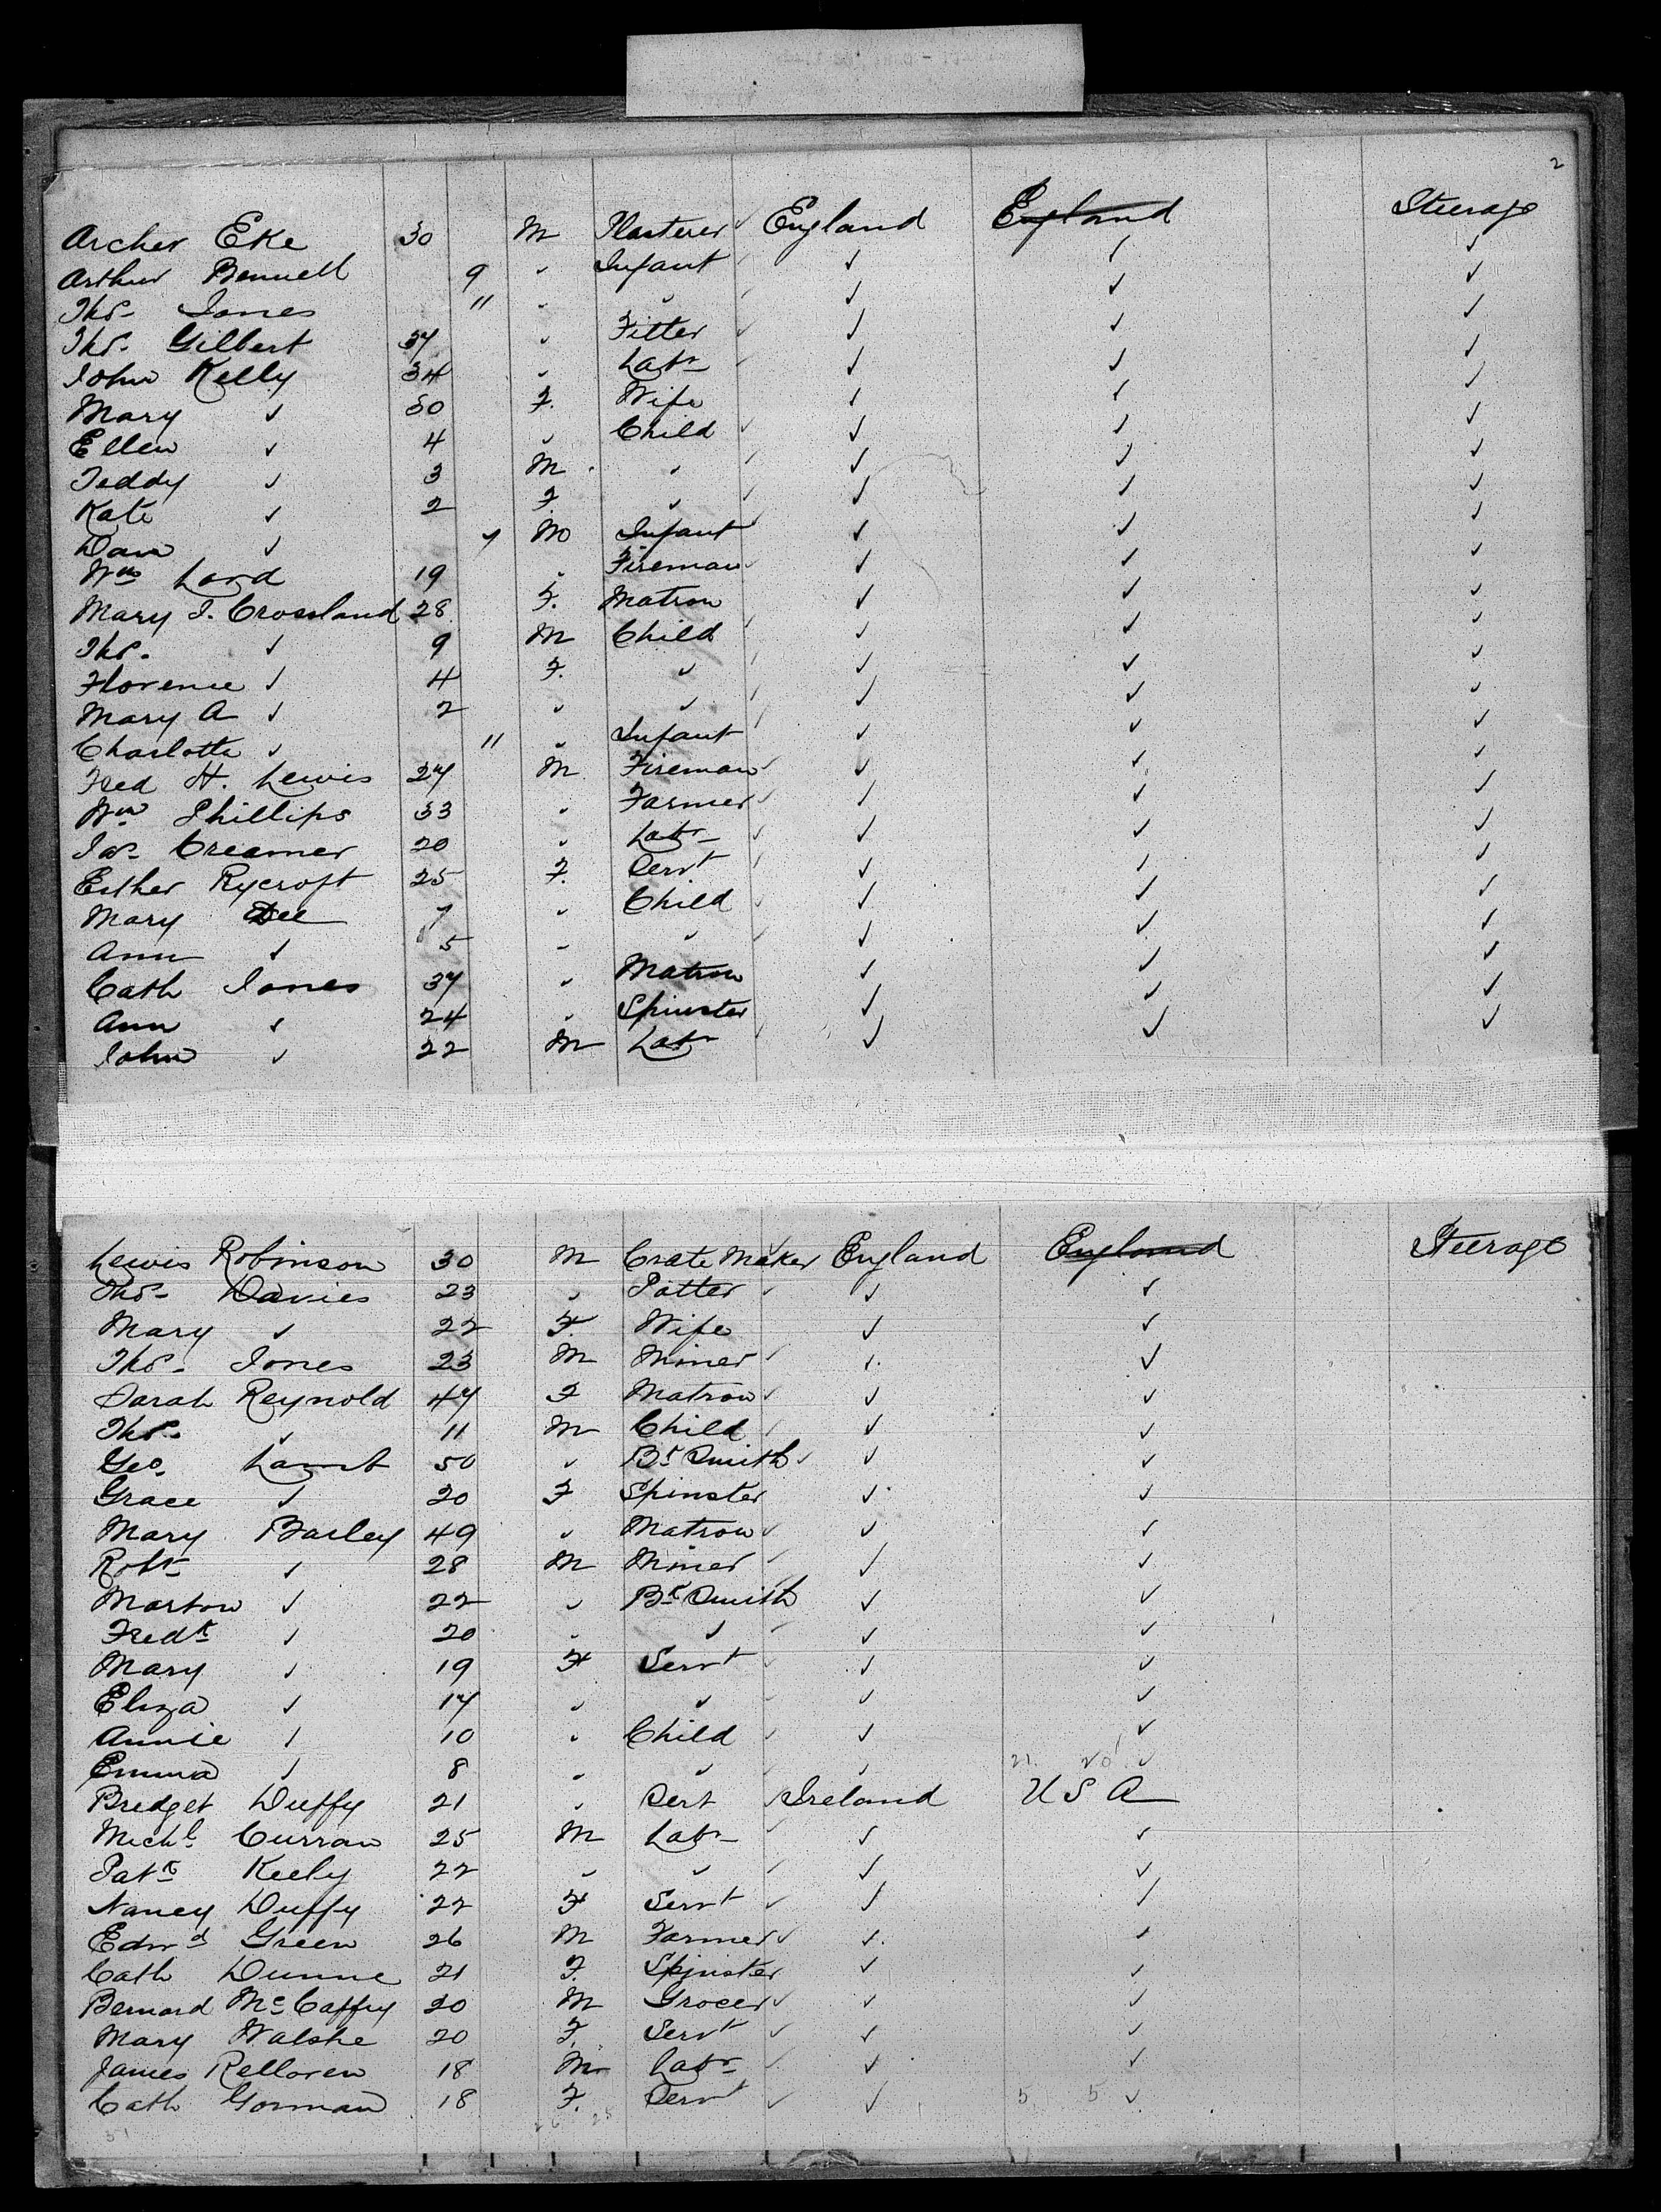 2
Archer Eke 30 M Plasterer England England Steerage
Arthur Bennett 9 " Infant " " "
Thos. Jones 11 " " " " "
Thos. Gilbert 37 " Fitter " " "
John Kelly 34 " Labr " " "
Mary " 30 F. Wife " " "
Ellen " 4 " Child " " "
Teddy " 3 M " " " "
Kate " 2 F " " " "
Dan " 7 M Infant " " "
Wm Lord 19 " Fireman " " "
Mary J. Crossland 28 F. Matron " " "
Thos. " 9 M Child " " "
Florence " 4 F. " " " "
Mary A " 2 " " " " "
Charlotte " 11 " Infant " " "
Fred H. Lewis 27 M Fireman " " "
Wm Phillips 33 " Farmer " " "
Jas. Creamer 20 " Labr " " "
Esther Rycroft 25 F. Servt " " "
Mary Dee 7 " Child " " "
Ann " 5 " " " " "
Cath Jones 37 " Matron " " "
Ann " 24 " Spinster " " "
John " 22 M Labr " " "
Lewis Robinson 30 M Crate Maker England England Steerage
Thos. Davies 23 " Potter " "
Mary " 22 F. Wife " "
Thos. Jones 23 M Miner " "
Sarah Reynold 47 F Matron " "
Thos. " 11 M Child " "
Geo. Lamb 50 " Bk Smith " "
Grace " 20 F Spinster " "
Mary Barley 49 " Matron " "
Robt " 28 M Miner " "
Marton " 22 " Bk Smith " "
Fredk " 20 " " " "
Mary " 19 F Servt " "
Eliza " 17 " " " "
Annie " 10 " Child " "
Emma " 8 " " " "
21 20
Bredget Duffy 21 " Sert Ireland U S A
Michl Curran 25 M Labr " "
Patk Keely 22 " " " "
Nancy Duffy 22 F Servt " "
Edwd Green 26 M Farmer " "
Cath Dunne 21 F. Spinster " "
Bernard McCaffry 20 M Grocer " "
Mary Walshe 20 F. Servt " "
James 18 M Labr " "
Cath Gorman 18 F. Servt " 5 5 "
51 26 25